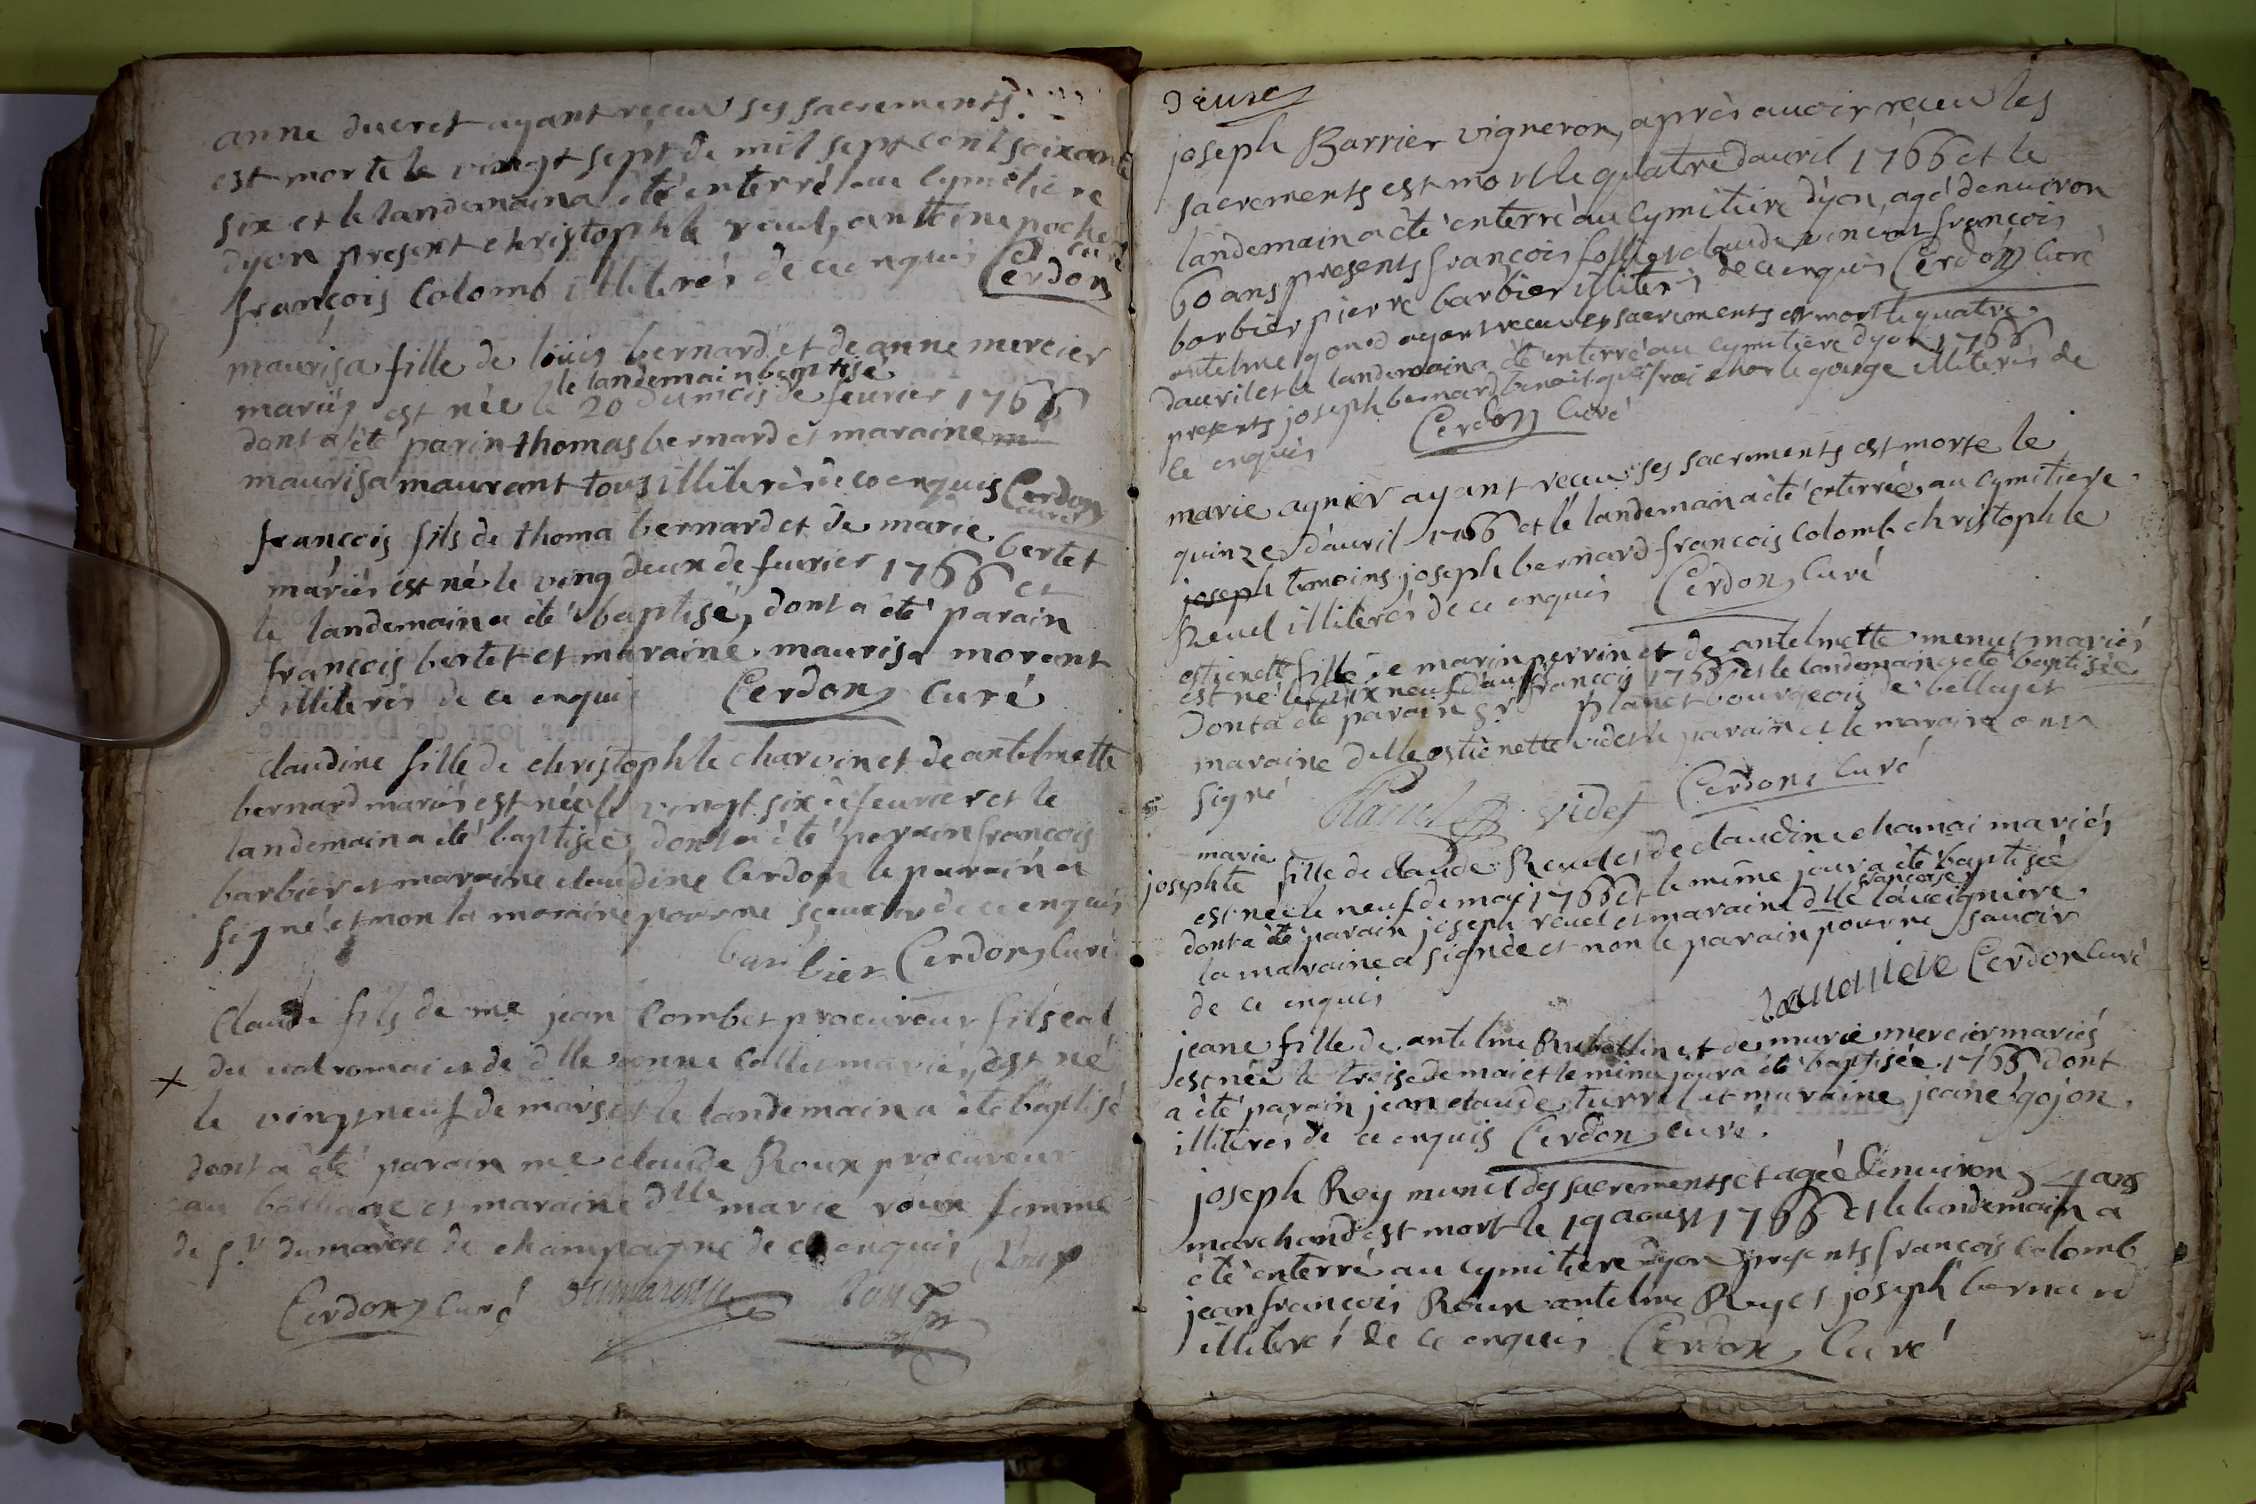 anne ducret ayant reçeu ses sacrements
est morte le vingt sept de mil sept cent soixante
six et le landemain a été enterré au cymetiere
dyon present christophle reud, antoine poche
françois Colomb illiterés de ce enquis Cerdon curé
maurisa fille de loüis bernard et de anne mercier
le landemain baptisé
mariés est née le 20 du mois de feurier 1766
dont a été parin thomas bernard et maraine
maurisa maurant tous illiterés de ce enquis Cerdon curé
françois fils de thoma bernard et de marie bertet
mariés est né le ving deux de feurier 1766 et
le landemain a été baptisé, dont a été parain
françois bertet et maraine maurisa morant
illiterés de ce enquis Cerdon Curé
claudine fille de christophle charvin et de antelmette
bernard mariés est née le vingt six de feurier et le
landemain a été baptisée dont a été parain françois
barbier et maraine claudine Cerdon le parain a
signé et non la maraine pour ne sçauoir de ce enquis
barbier Cerdon Curé
Claude fils de me jean Combet procureur fiscal
du ualromai et de dlle anne Collet mariés, est né
le vingt neuf de mars et le landemain a été baptisé
dont a été parain me claude Roux procureur
au balliage et maraine dlle marie roux femme
de sr dumarest de champagne de ce enquis Roux
Cerdon Curé dumarest Roux
joseph Barrier vigneron, après auoir reçeu les
sacrements est mort le quatre dauril 1766 et le
landemain a été enterré au Cymitiere dyon, agé denuiron
60 ans presents françois follliet claude vincent françois
barbier pierre barbier illiterés de ce enquis Cerdon Curé
antelme gonod ayant receu les sacrements est mort le quatre
dauril et le landemain a été enterré au cymitiere dyon 1766
presents joseph bernard benoit charle gouge illiterés de
ce enquis Cerdon Curé
marie agnier ayant receu ses sacrements est morte le
quinze dauril 1766 et le landemain a été enterrée, au Cymitiere
joseph temoins joseph bernard françois Colomb christophle
Reud illiterés de ce enquis Cerdon, Curé
estienette fille de marin perrin et de antelmette menut mariés
est né le dix neuf dauril 1766 et le landemain a été baptisée
Dont a été parain sr françois planet bourgeois de belley et
maraine dlle estienette videt le parain et le maraine ont
signé Planet videt Cerdon, Curé
marie
josephte fille de claude Reud et de claudine chamoi mariés
est née le neuf de mai 1766 et le même jour a été baptisée
dont a été parain joseph reud et maraine dlle françoise lauigniere
la maraine a signée et non le parain pour ne sauoir
de ce enquis lauigniere Cerdon Curé
jeane fille de antelme Rubellin et de marie mercier mariés
est née le trois de mai et le même jour a été baptisée 1766 dont
a été parain jean claude turrel et maraine jeane gojon
illiterés de ce enquis Cerdon, cure.
joseph Rey muni des sacrements et agée denuiron 54 ans
marchand est mort le 19 aoust 1766 et le landemain a
été enterré au cymitiere dyon presents françois Colomb
jean françois Roux antelme Rey et joseph bernard
illiterés de ce enquis Cerdon, Curé